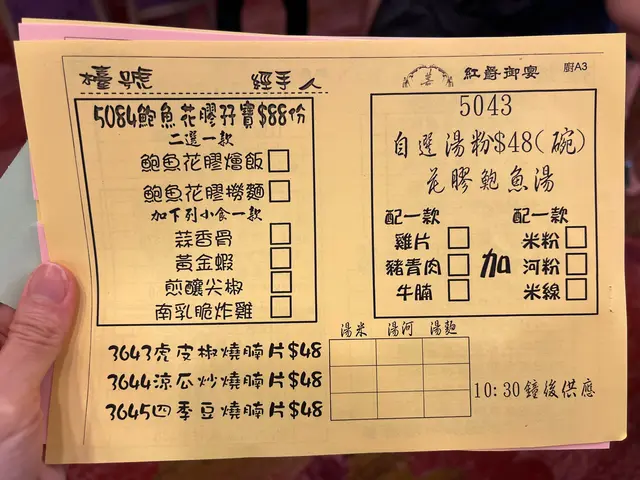 檯號 經手人
紅爵御宴 廚A3
5084鮑魚花膠孖寶$88份
二選一款
鮑魚花膠燴飯
鮑魚花膠撈麵
加下列小食一款
蒜香骨
黃金蝦
煎釀尖椒
南乳脆炸雞
5043
自選湯粉$48(碗)
花膠鮑魚湯
配一款 配一款
雞片 米粉
豬青肉 加 河粉
牛腩 米線
湯米 湯河 湯麵
3643虎皮椒燒腩片$48
3644涼瓜炒燒腩片$48
3645四季豆燒腩片$48
10:30鐘後供應